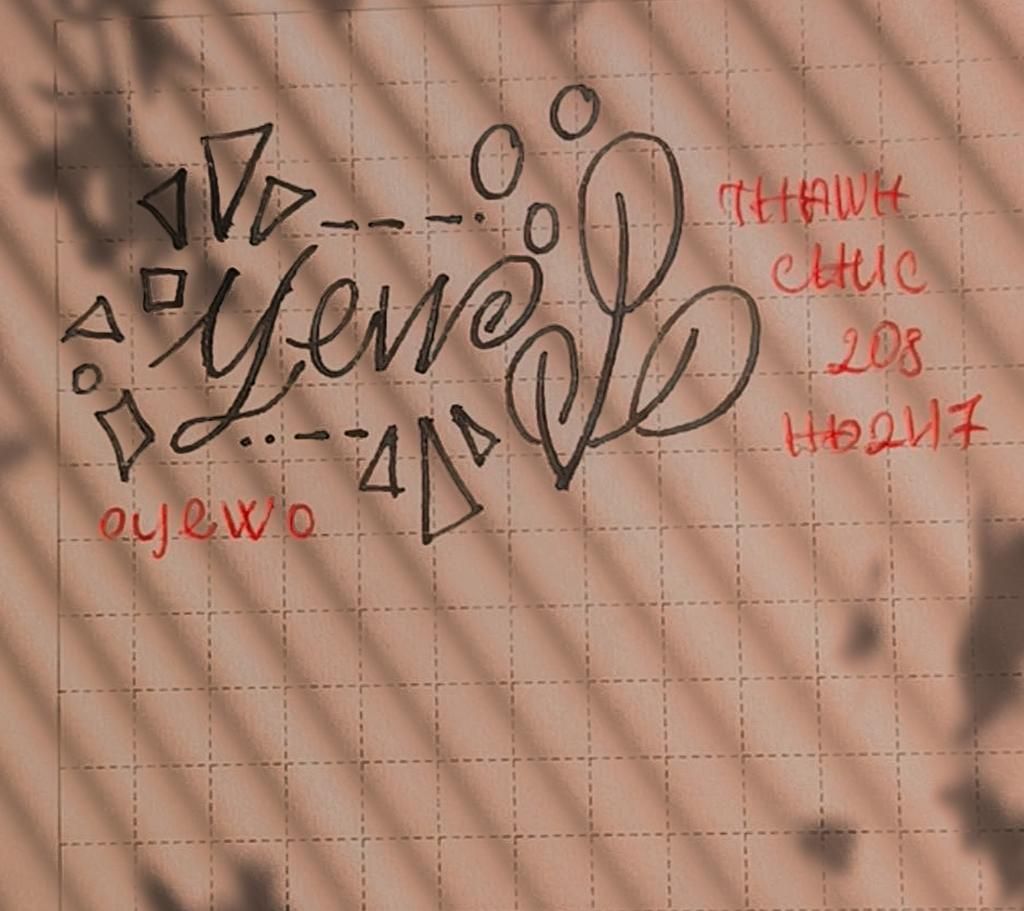 yewo
THAWH
CHUC
208
HD2417
oyewo